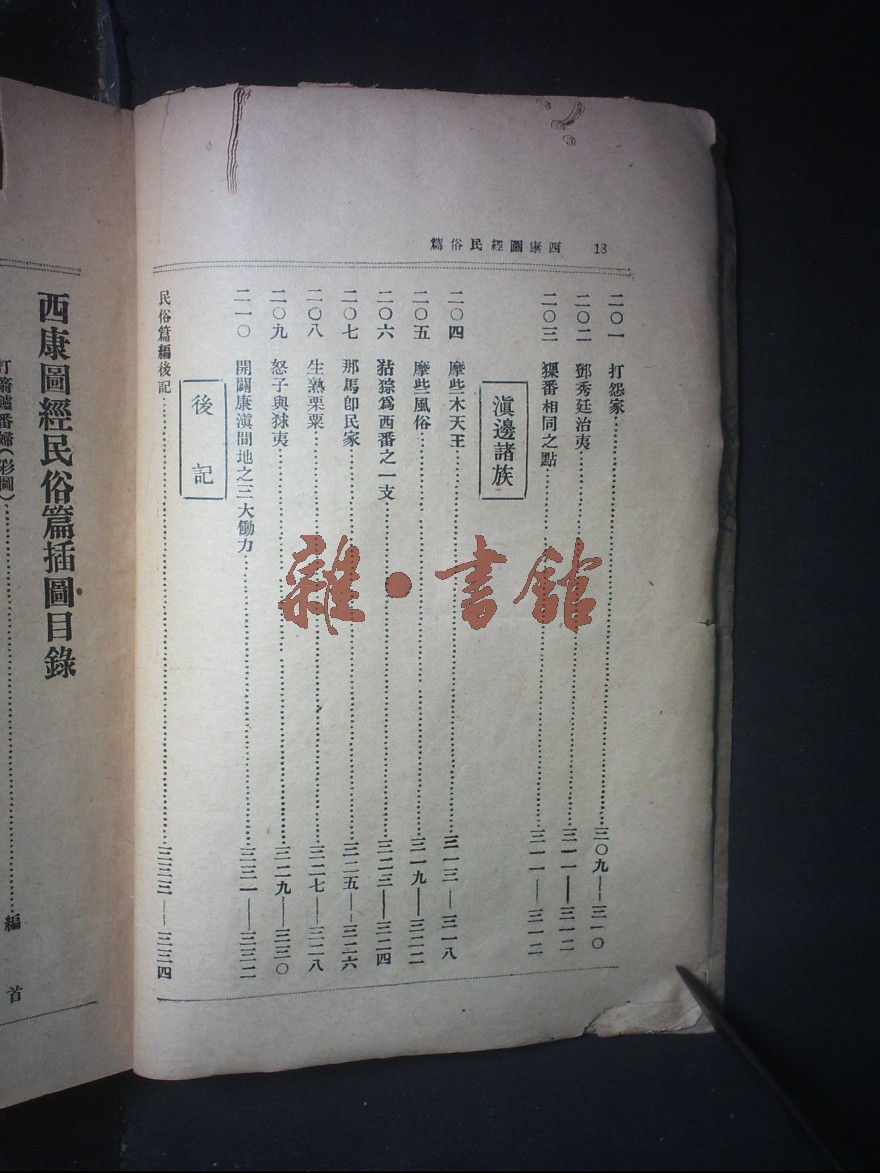 西康圖經民俗篇 18
二〇一 打怨家……三〇九——三一〇
二〇二 鄧秀廷治夷……三一一——三一二
二〇三 猓番相同之點……三一一——三一二
滇邊諸族
二〇四 摩些木天王……三一三——三一八
二〇五 摩些風俗……三一九——三二二
二〇六 猰㺄爲西番之一支……三二三——三二四
二〇七 那馬卽民家……三二五——三二六
二〇八 生熟栗粟……三二七——三二八
二〇九 怒子與狇夷……三二九——三三〇
二一〇 開闢康滇間地之三大働力……三三一——三三二
後記
民俗篇編後記……三三三——三三四
西康圖經民俗篇插圖目錄
打箭鑪番婦（彩圖）……編首
雜·書館